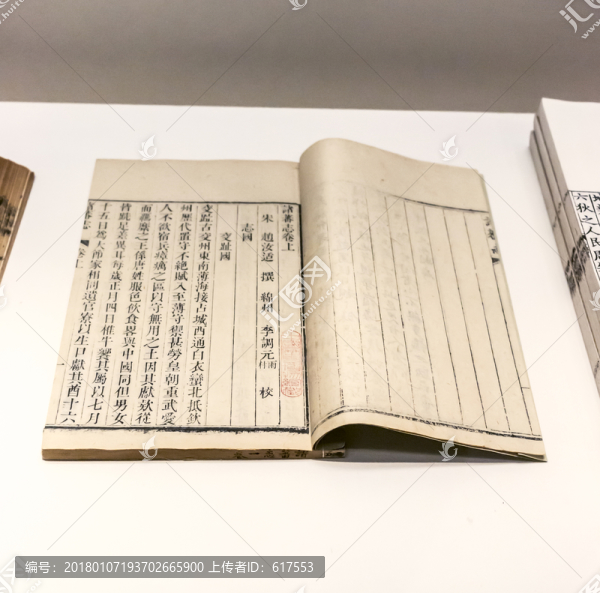 諸蕃志卷上
宋 趙汝适 撰 綿州 李調元 雨村 校
志國
交趾國
交趾古交州東南薄海接占城西通白衣蠻北抵欽
州歷代置守不絕賦入至薄守禦甚勞皇朝重武愛
人不欲宿兵瘴癘之區以守無用之土因其獻款從
而羈縻之王係唐姓服色飲食畧與中國同但男女
皆跣足差異耳每歲正月四日椎牛饗其屬以七月
十五日爲大節家相問遺官寮以生口獻其酋十六
諸蕃志 卷上
六狄之人民
编号:20180107193702665900 上传者ID:617553